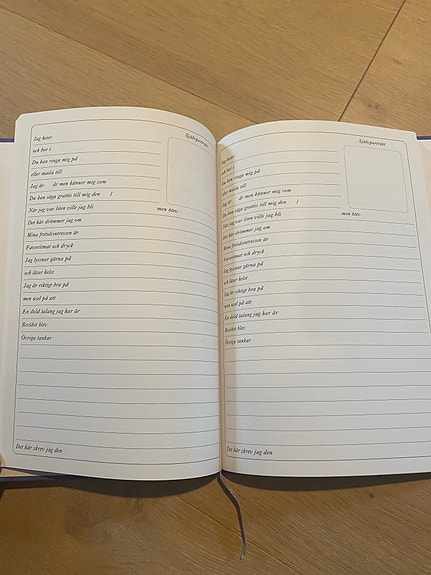 Självporträtt
Jag heter
och bor i
Du kan ringa mig på
eller maila till
Jag är är men känner mig som
Du kan säga grattis till mig den /
När jag var liten ville jag bli
men blev
Det här drömmer jag om
Mina fritidsintressen är
Favoritmat och dryck
Jag lyssnar gärna på
och läser helst
Jag är riktigt bra på
men usel på att
En dold talang jag har är
Besöket blev
Övriga tankar
Det här skrev jag den
Självporträtt
Jag heter
och bor i
Du kan ringa mig på
eller maila till
Jag är är men känner mig som
Du kan säga grattis till mig den /
När jag var liten ville jag bli
men blev
Det här drömmer jag om
Mina fritidsintressen är
Favoritmat och dryck
Jag lyssnar gärna på
och läser helst
Jag är riktigt bra på
men usel på att
En dold talang jag har är
Besöket blev
Övriga tankar
Det här skrev jag den